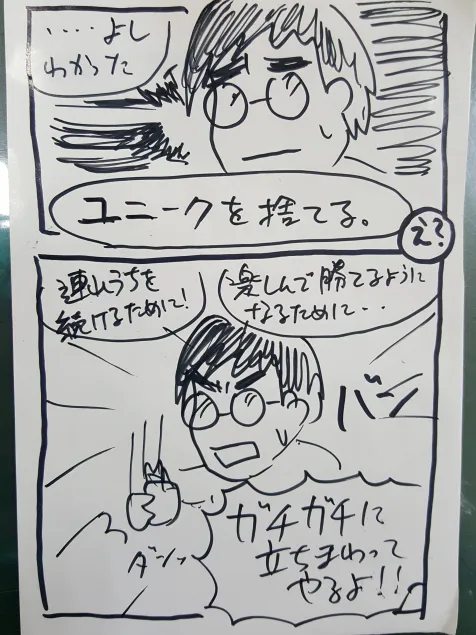 ‥‥よし
わかった
ユニークを捨てる。
え?
楽しんで勝てるように
なるために‥
連れうちを
続けるために!
バーン
ダンッ
ガチガチに
立ちまわって
やるよ!!